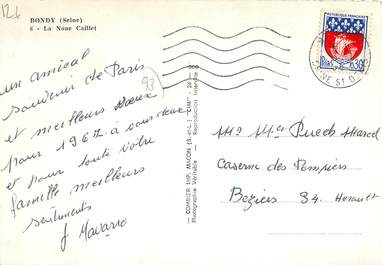 12d
BONDY (Seine)
8 - La Noue Caillet
un amical
souvenir de Paris
et meilleurs vœux
pour 1967 à vous deux
et pour toute votre
famille meilleurs
sentiments
J Navarro
93
COMBIER IMP. MACON (S.-et-L.) "CIM"
Photographie Véritable - Reproduction Interdite
REPUBLIQUE FRANCAISE
0,30
Mr Mme Puech Marcel
Caserne des Pompiers
Beziers 34. Herault